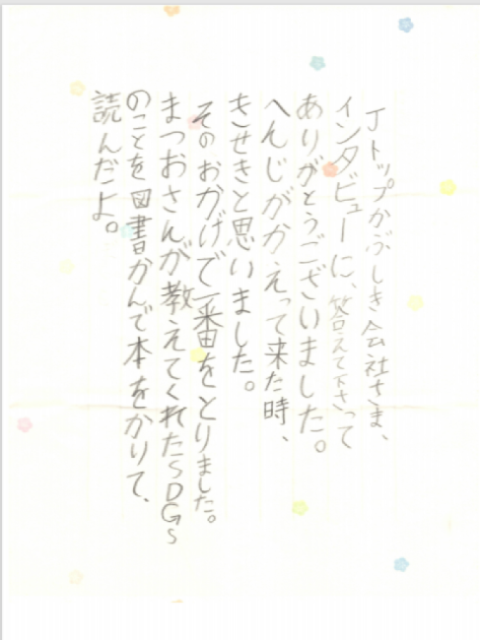 Jトップかぶしき会社さま、
インタビューに、答えて下さって
ありがとうございました。
へんじがかえって来た時、
きせきと思いました。
そのおかげで一番をとりました。
まつおさんが教えてくれたSDGs
のことを図書かんで本をかりて、
読んだよ。